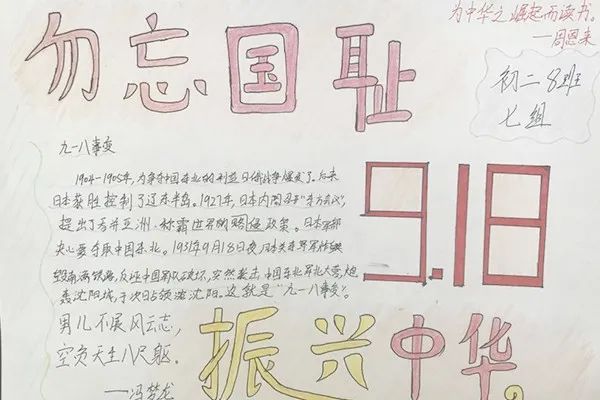 勿忘国耻
为中华之崛起而读书。
——周恩来
初二8班
七组
九一八事变
1904-1905年,为争夺中国东北的利益日俄战争爆发了。后来
日本获胜控制了辽东半岛。1927年,日本内阁召开“东方会议”,
提出了吞并亚洲、称霸世界的 侵政策。日本军部
决心要夺取中国东北。1931年9月18日夜,日本关东军军
毁南满铁路,反诬中国军队破坏,突然袭击中国东北军北大营,炮
轰沈阳城,于次日占领沈阳。这就是“九一八事变”。
9.18
男儿不展风云志,
空负天生八尺躯。
——冯梦龙
振兴中华。